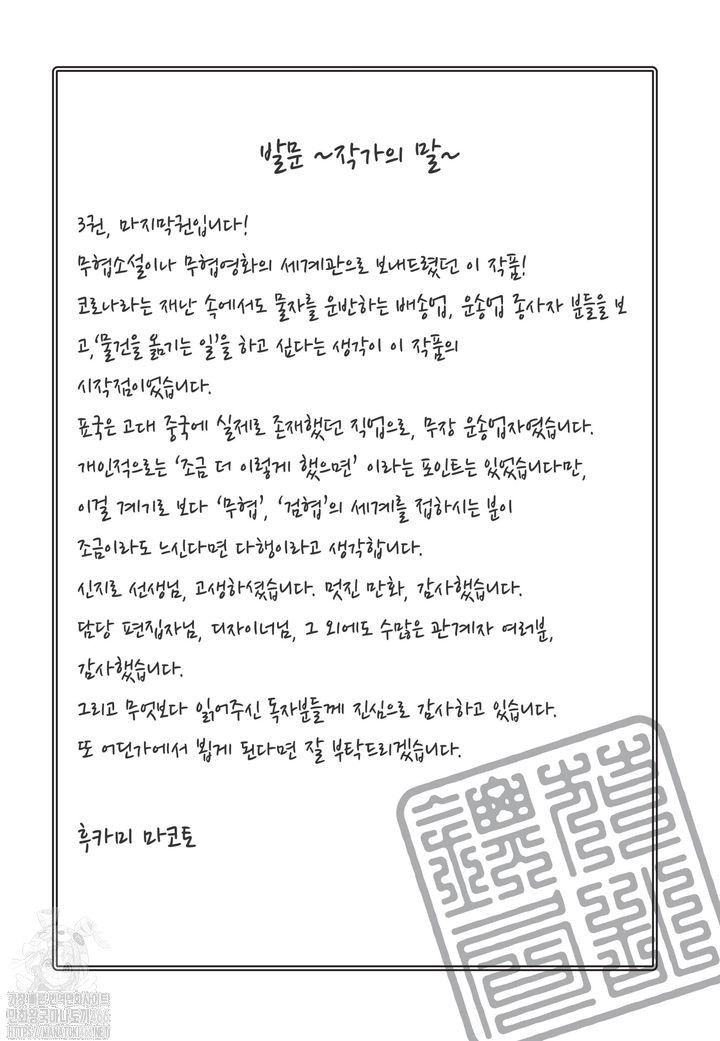 발문 ~작가의 말~
3권, 마지막권입니다!
무협소설이나 무협영화의 세계관으로 보내드렸던 이 작품!
코로나라는 재난 속에서도 물자를 운반하는 배송업, 운송업 종사자 분들을 보
고,'물건을 옮기는 일'을 하고 싶다는 생각이 이 작품의
시작점이었습니다.
표국은 고대 중국에 실제로 존재했던 직업으로, 무장 운송업자였습니다.
개인적으로는 '조금 더 이렇게 했으면' 이라는 포인트는 있었습니다만,
이걸 계기로 보다 '무협', '검협'의 세계를 접하시는 분이
조금이라도 느신다면 다행이라고 생각합니다.
신지로 선생님, 고생하셨습니다. 멋진 만화, 감사했습니다.
담당 편집자님, 디자이너님, 그 외에도 수많은 관계자 여러분,
감사했습니다.
그리고 무엇보다 읽어주신 독자분들께 진심으로 감사하고 있습니다.
또 어딘가에서 뵙게 된다면 잘 부탁드리겠습니다.
후카미 마코토
가장빠른번역만화사이트
만화왕국마나토끼
HTTPS://MANATOKI